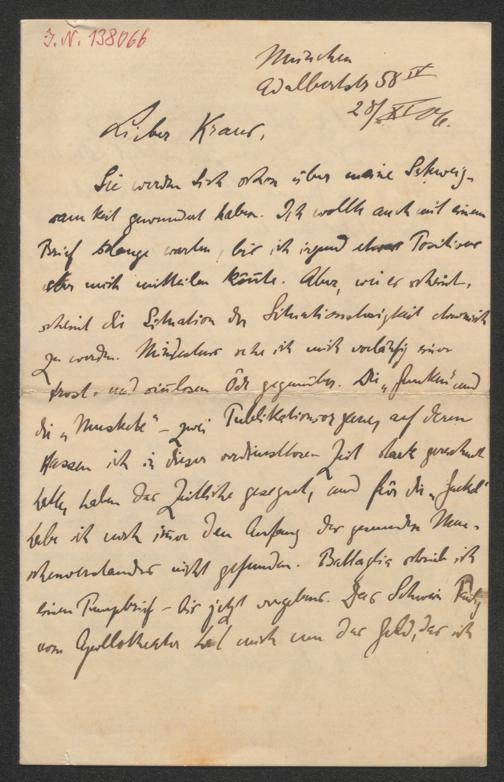 I. N. 138066
München
Adalbertstr 58 IV
28/XI 06.
Lieber Kraus,
Sie werden sich schon über meine Schweig-
samkeit gewundert haben. Ich wollte auch mit einem
Brief solange warten, bis ich irgend etwas Positives
über mich mitteilen könnte. Aber, wie es scheint,
scheint die Situation der Situationslosigkeit chronisch
zu werden. Mindestens sehe ich mich vorläufig einer
trost- und sinnlosen Öde gegenüber. Die „Funken" und
die „Muskete" – zwei Publikationsorgane, auf deren
Kassen ich in dieser verdienstlosen Zeit stark gerechnet
hatte, haben das Zeitliche gesegnet, und für die „Fackel"
habe ich noch immer den Anfang des gesunden Men-
schenverstandes nicht gefunden. Battaglia schrieb ich
einen Pumpbrief – bis jetzt vergebens. Das Schwein
vom Apollotheater hat mich um das Geld, das ich